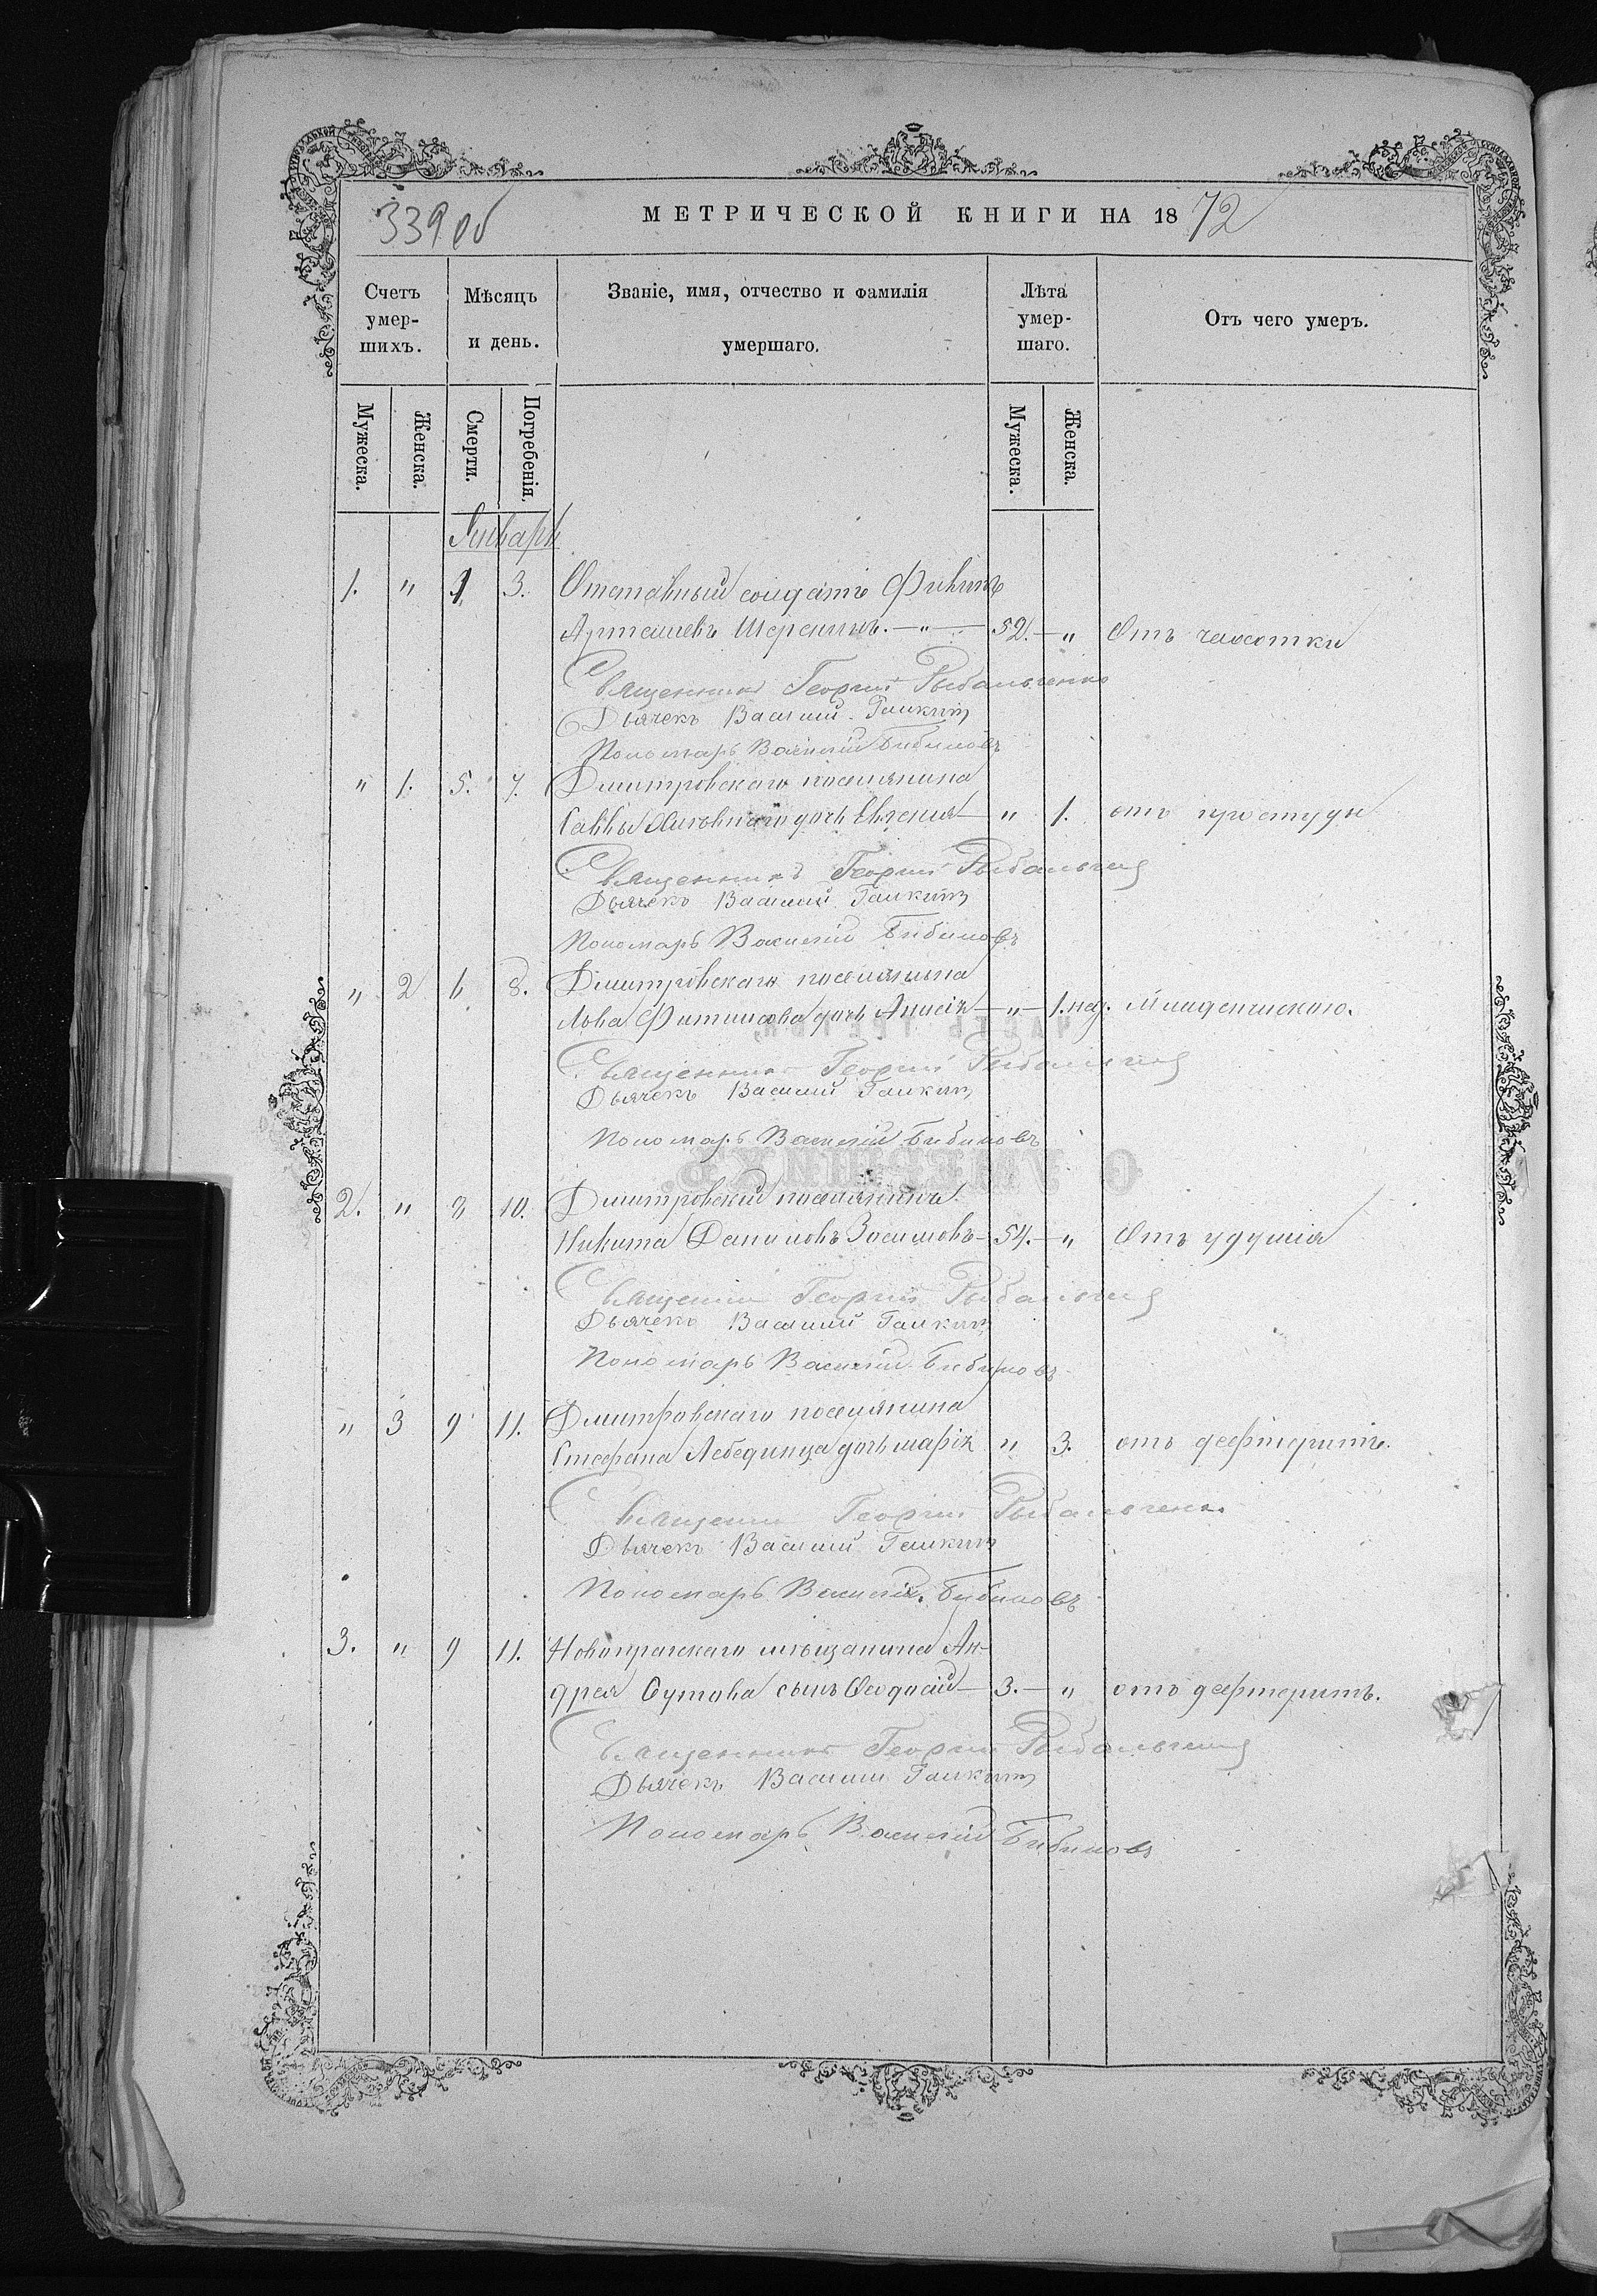 339 об
МЕТРИЧЕСКОЙ КНИГИ НА 1872
Счетъ умер-шихъ. Мѣсяцъ и день. Званіе, имя, отчество и фамилія умершаго. Лѣта умер-шаго. Отъ чего умеръ.
Мужеска. Женска. Смерти. Погребенія. Мужеска. Женска.
Январь
1. " 1 3. Отставный солдатъ
52. " Отъ чахотки
Священникъ Георгій Рыбальченко
Дьячекъ Василій Галкинъ
Пономарь Василій Бибиковъ
" 1. 5. 7. Дмитровскаго поселянина
Саввы дочь Евгенія " 1. отъ простуды
Священникъ Георгій Рыбальченко
Дьячекъ Василій Галкинъ
Пономарь Василій Бибиковъ
" 2 6 8. Дмитровскаго поселянина
дочь Анисія " 1. нед. Младенческою.
Священникъ Георгій Рыбальченко
Дьячекъ Василій Галкинъ
Пономарь Василій Бибиковъ
2. " 8 10. Дмитровскій поселянинъ
Никита Даниловъ 54. " Отъ удушія
Священникъ Георгій Рыбальченко
Дьячекъ Василій Галкинъ
Пономарь Василій Бибиковъ
" 3 9 11. Дмитровскаго поселянина
Стефана Лебединца дочь Марія " 3. отъ дефтеритъ.
Священникъ Георгій Рыбальченко
Дьячекъ Василій Галкинъ
Пономарь Василій Бибиковъ
3. " 9 11. Новопрагскаго мѣщанина Ан-
дрея сынъ Феодосій 3. " отъ дефтеритъ.
Священникъ Георгій Рыбальченко
Дьячекъ Василій Галкинъ
Пономарь Василій Бибиковъ